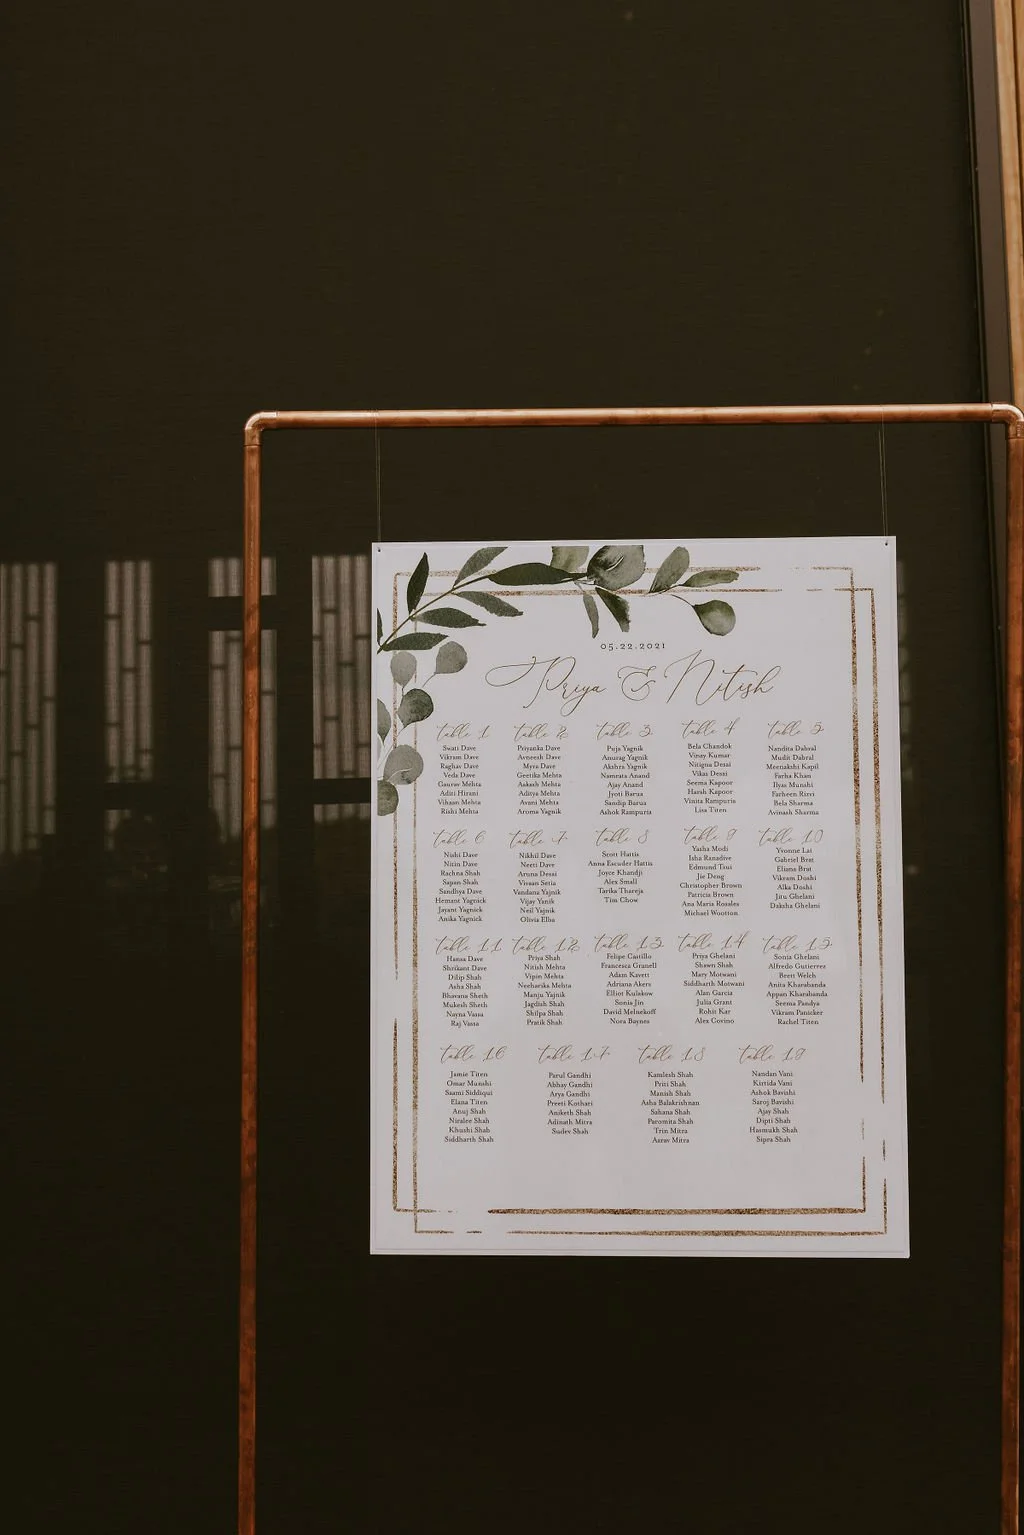 05.22.2021
Priya & Nitish
table 1
Swati Dave
Vikram Dave
Raghav Dave
Veda Dave
Gaurav Mehta
Aditi Hirani
Vihaan Mehta
Rishi Mehta
table 2
Priyanka Dave
Avneesh Dave
Myra Dave
Geetika Mehta
Aakash Mehta
Aditya Mehta
Avani Mehta
Aroma Yagnik
table 3
Puja Yagnik
Anurag Yagnik
Akshra Yagnik
Namrata Anand
Ajay Anand
Jyoti Barua
Sandip Barua
Ashok Rampuria
table 4
Bela Chandok
Vinay Kumar
Nitigna Desai
Vikas Desai
Seema Kapoor
Harsh Kapoor
Vinita Rampuria
Lisa Titen
table 5
Nandita Dabral
Mudit Dabral
Meenakshi Kapil
Farha Khan
Ilyas Munshi
Farheen Rizvi
Bela Sharma
Avinash Sharma
table 6
Nishi Dave
Nitin Dave
Rachna Shah
Sapan Shah
Sandhya Dave
Hemant Yagnick
Jayant Yagnick
Anika Yagnick
table 7
Nikhil Dave
Neeti Dave
Aruna Desai
Vivaan Setia
Vandana Yajnik
Vijay Yanik
Neil Yajnik
Olivia Elba
table 8
Scott Hattis
Anna Escuder Hattis
Joyce Khandji
Alex Small
Tarika Thareja
Tim Chow
table 9
Yasha Modi
Isha Ranadive
Edmund Tsui
Jie Deng
Christopher Brown
Patricia Brown
Ana Maria Rosales
Michael Wootton
table 10
Yvonne Lai
Gabriel Brat
Eliana Brat
Vikram Doshi
Alka Doshi
Jitu Ghelani
Daksha Ghelani
table 11
Hansa Dave
Shrikant Dave
Dilip Shah
Asha Shah
Bhavana Sheth
Mukesh Sheth
Nayna Vassa
Raj Vassa
table 12
Priya Shah
Nitish Mehta
Vipin Mehta
Neeharika Mehta
Manju Yajnik
Jagdish Shah
Shilpa Shah
Pratik Shah
table 13
Felipe Castillo
Francesca Grunell
Adam Kavett
Adriana Akers
Elliot Kulakow
Sonia Jin
David Melnekoff
Nora Baynes
table 14
Priya Ghelani
Shawn Shah
Mary Motwani
Siddharth Motwani
Alan Garcia
Julia Grant
Rohit Kar
Alex Covino
table 15
Sonia Ghelani
Alfredo Gutierrez
Brett Welch
Anita Kharabanda
Appan Kharabanda
Seema Pandya
Vikram Panicker
Rachel Titen
table 16
Jamie Titen
Omar Munshi
Saami Siddiqui
Elana Titen
Anuj Shah
Niralee Shah
Khushi Shah
Siddharth Shah
table 17
Parul Gandhi
Abhay Gandhi
Arya Gandhi
Preeti Kothari
Aniketh Shah
Adinath Mitra
Sudev Shah
table 18
Kamlesh Shah
Priti Shah
Manish Shah
Asha Balakrishnan
Sahana Shah
Paromita Shah
Trin Mitra
Aarav Mitra
table 19
Nandan Vani
Kirtida Vani
Ashok Bavishi
Saroj Bavishi
Ajay Shah
Dipti Shah
Hasmukh Shah
Sipra Shah